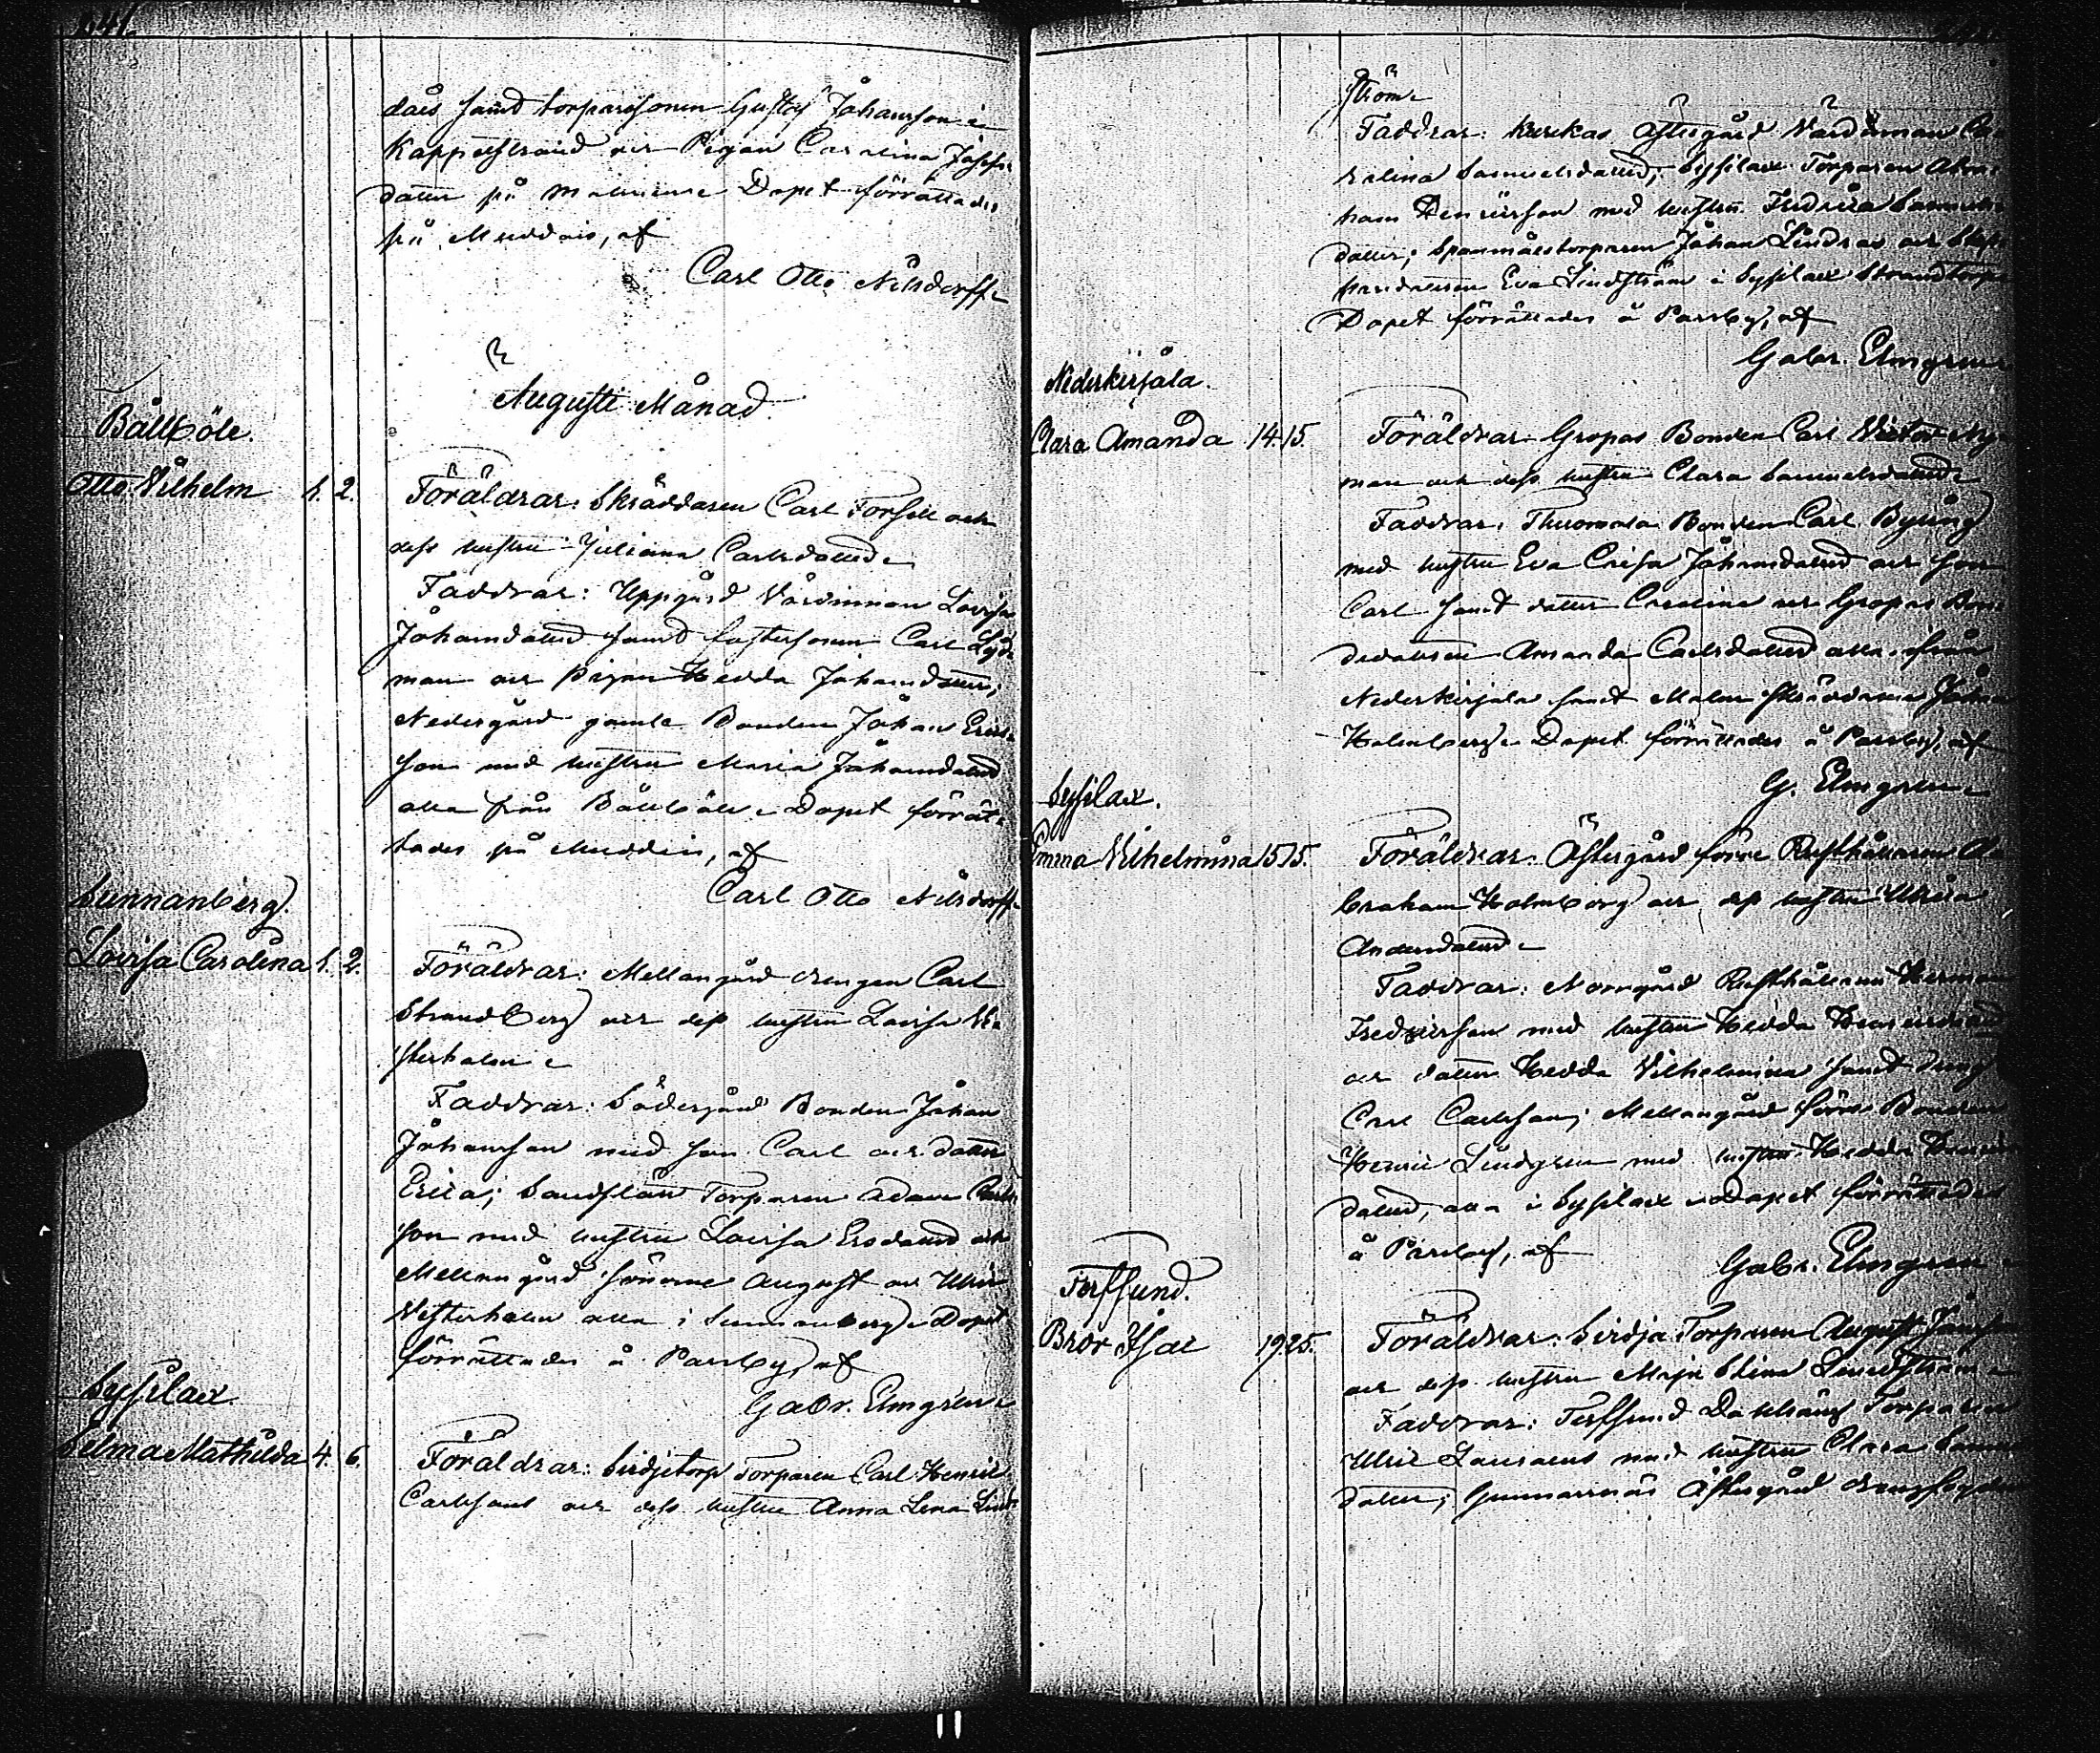 541.
dais samt torparesonen Gustaf Johansson i
Kappelstrand och Pigan Carolina Josefs
dotter på Malmnäs Dopet förrättades
på Muddais, af
Carl Otto Nilsdorff
Augusti Månad.
Bållböle.
Otto Vilhelm 1. 2. Föräldrar: Skräddaren Carl Forsell och
dess hustru Juliana Carlsdotter
Faddrar: Uppgård Värdinnan Lovisa
Johansdotter samt fostersonen Carl
man och pigan Hedda Johansdotter;
Nedergård gamle Bonden Johan Erics
son med hustru Maria Johansdotter
alla från Bållböle. Dopet förrät-
tades på Muddais, af
Carl Otto Nilsdorff
Sunnanberg.
Lovisa Carolina 1. 2. Föräldrar: Mellangård drengen Carl
Strandberg och dess hustru Lovisa We
sterholm
Faddrar: Södergård Bonden Johan
Johansson med son Carl och dotter
Erica; Torparen Adam Carls
son med hustru Lovisa Ersdotter och
Mellangård sönerne August och Ulric
Vesterholm alla i Sunnanberg. Dopet
förrättades å Parsby, af
Gabr. Elmgren
Sysilax.
Selma Mathilda 4. 6. Föräldrar: Sirdjetorp Torparen Carl Henric
Carlsson och dess hustru Anna Lena Lind
ström
Faddrar: Östergård Värdinnan Ca
rolina Samuelsdotter; Sysilax Torparen Abra
ham Henricsson med hustru Fredrica Samuels
dotter; Torparen Johan Lindroos och
Eva Lindström i Sysilax Strandtorp
Dopet förrättades å Parsby, af
Gabr. Elmgren
Nederkirjala.
Clara Amanda 14. 15. Föräldrar: Gropas Bonden Carl Victor Ny
man och dess hustru Clara Samuelsdotter
Faddrar: Thuomola Bonden Carl Byring
med hustru Eva Caisa Johansdotter och son
Carl samt dotter Carolina och Gropas Bon
dedottren Amanda Carlsdotter alla från
Nederkirjala samt Malm skräddaren Johan
Holmberg. Dopet förrättades å Parsby, af
G. Elmgren
Sysilax.
Emma Vilhelmina 15. 15. Föräldrar: Östergård förre Rusthållaren A
braham Holmborg och dess hustru Ulrica
Andersdotter
Faddrar: Norrgård Rusthållaren Herman
Fredricsson med hustru Hedda Henricsdotter
och dotter Hedda Vilhelmina samt dreng
Carl Carlsson; Mellangård förre Bonden
Henric Lindgren med hustru Hedda Henrics
dotter, alla i Sysilax. Dopet förrättades
å Parsby, af Gabr. Elmgren
Terfsund.
Bror Isac 19. 25. Föräldrar: Sirdja Torparen August Johansson
och dess hustru Maja Stina Lindström
Faddrar: Terfsund Torparen
Ulric Laurens med hustru Clara Samuels
dotter; Gunnarnäs Östergård